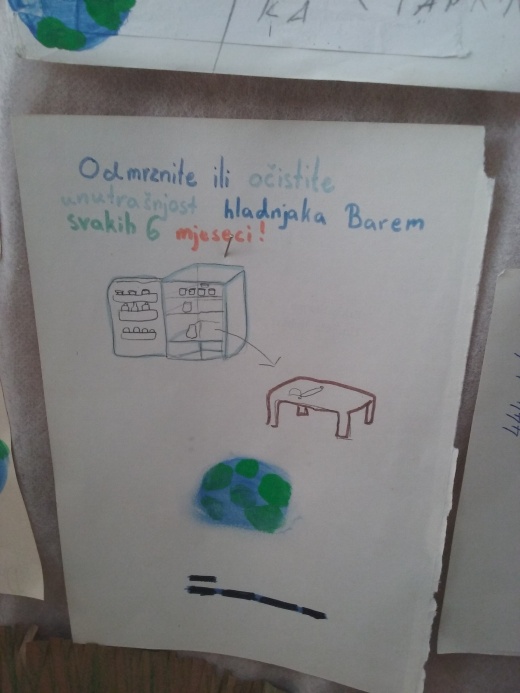 KA
Odmrznite ili očistite
unutrašnjost hladnjaka Barem
svakih 6 mjeseci!